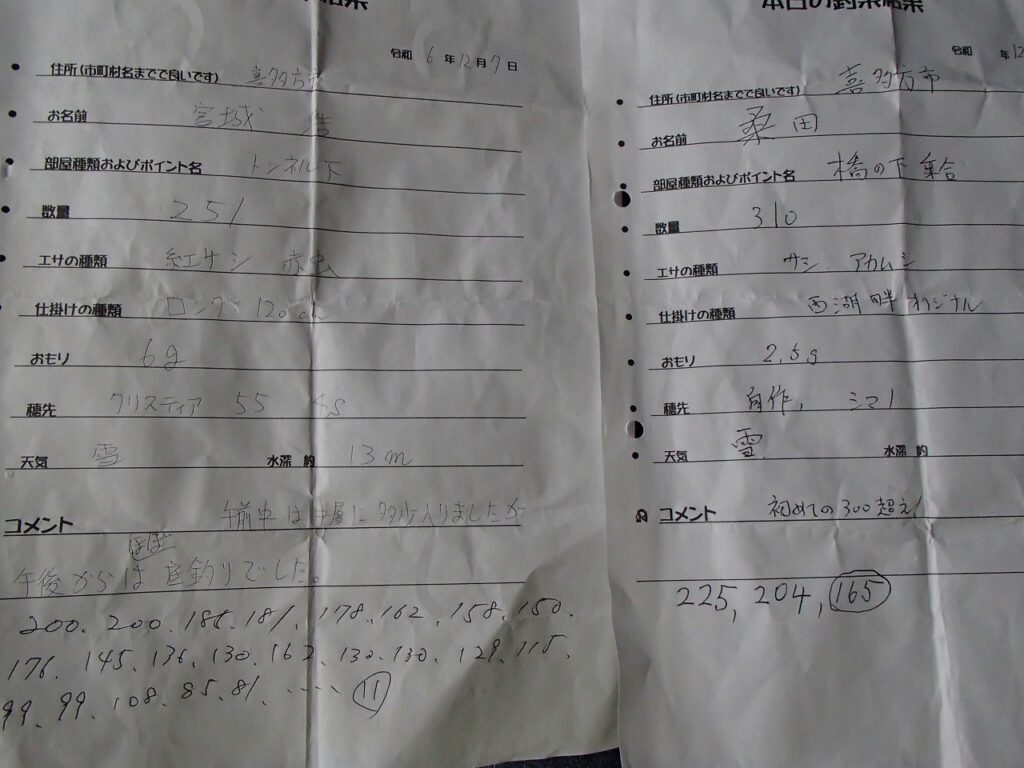 令和 6 年 12 月 7 日
住所(市町村名までで良いです) 喜多方市
お名前 宮城 浩
部屋種類およびポイント名 トンネル下
数量 251
エサの種類 紅サシ 赤虫
仕掛けの種類 ロング 120cm
おもり 6g
穂先 クリスティア 55
天気 雪 水深 約 13m
コメント 午前中は中層に多少入りましたが
ほぼ
午後からは底釣りでした。
200、200、186、181、178、162、158、150、
176、145、136、130、162、130、130、129、115、
99、99、108、85、81、‥‥ 11
本日の釣果結果
令和 年 12
住所(市町村名までで良いです) 喜多方市
お名前 桑田
部屋種類およびポイント名 橋の下 集合
数量 310
エサの種類 サシ アカムシ
仕掛けの種類 西湖畔オリジナル
おもり 2,5g
穂先 自作、シマノ
天気 雪 水深 約
コメント 初めての300超え!
225, 204, 165